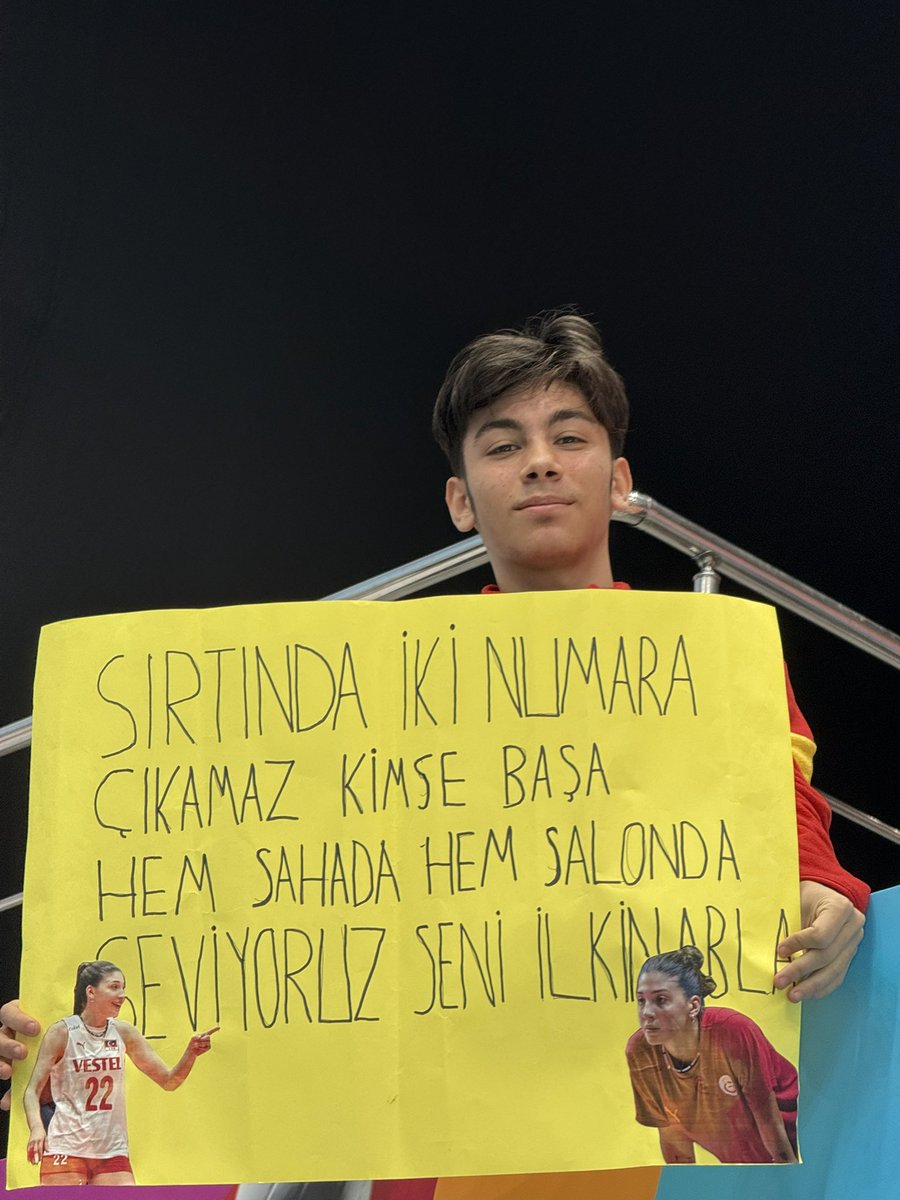 SIRTINDA İKİ NUMARA
ÇIKAMAZ KİMSE BAŞA
HEM SAHADA HEM SALONDA
SEVİYORUZ SENİ İLKİN ABLA
VESTEL
22
22